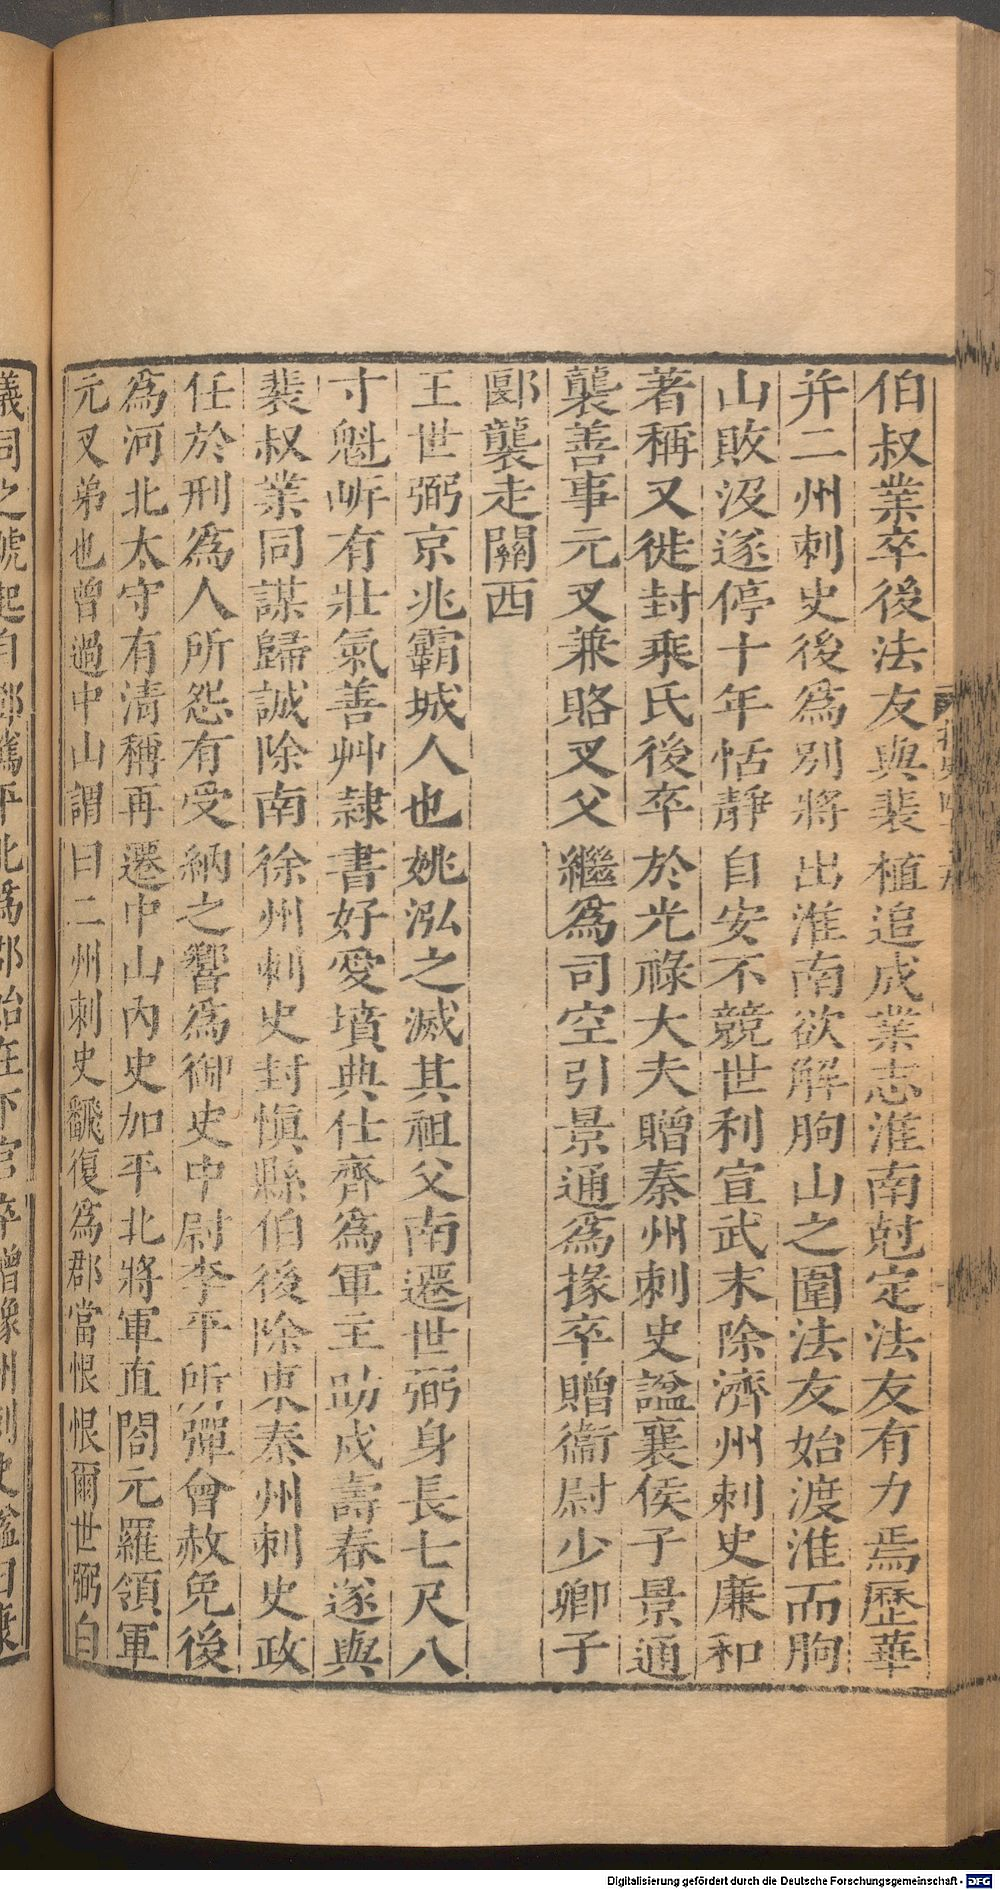 伯叔業卒後法友與裴植追成業志淮南尅定法友有力焉歷華
并二州刺史後爲別將出淮南欲解朐山之圍法友始渡淮而朐
山敗沒遂停十年恬靜自安不競世利宣武末除濟州刺史廉和
著稱又徙封乘氏後卒於光祿大夫贈秦州刺史諡襄侯子景通
襲善事元叉兼賂叉父繼爲司空引景通爲掾卒贈衞尉少卿子
郾襲走關西
王世弼京兆霸城人也姚泓之滅其祖父南遷世弼身長七尺八
寸魁岸有壯氣善艸隸書好愛墳典仕齊爲軍主助戍壽春遂與
裴叔業同謀歸誠除南徐州刺史封愼縣伯後除東秦州刺史政
任於刑爲人所怨有受納之響爲御史中尉李平所彈會赦免後
爲河北太守有淸稱再遷中山內史加平北將軍直閤元羅領軍
元叉弟也曾過中山謂曰二州刺史翻復爲郡當恨恨爾世弼自
儀同之號起自鄧騭平北爲郡始在下官卒贈豫州刺史諡曰康
Digitalisierung gefördert durch die Deutsche Forschungsgemeinschaft - DFG